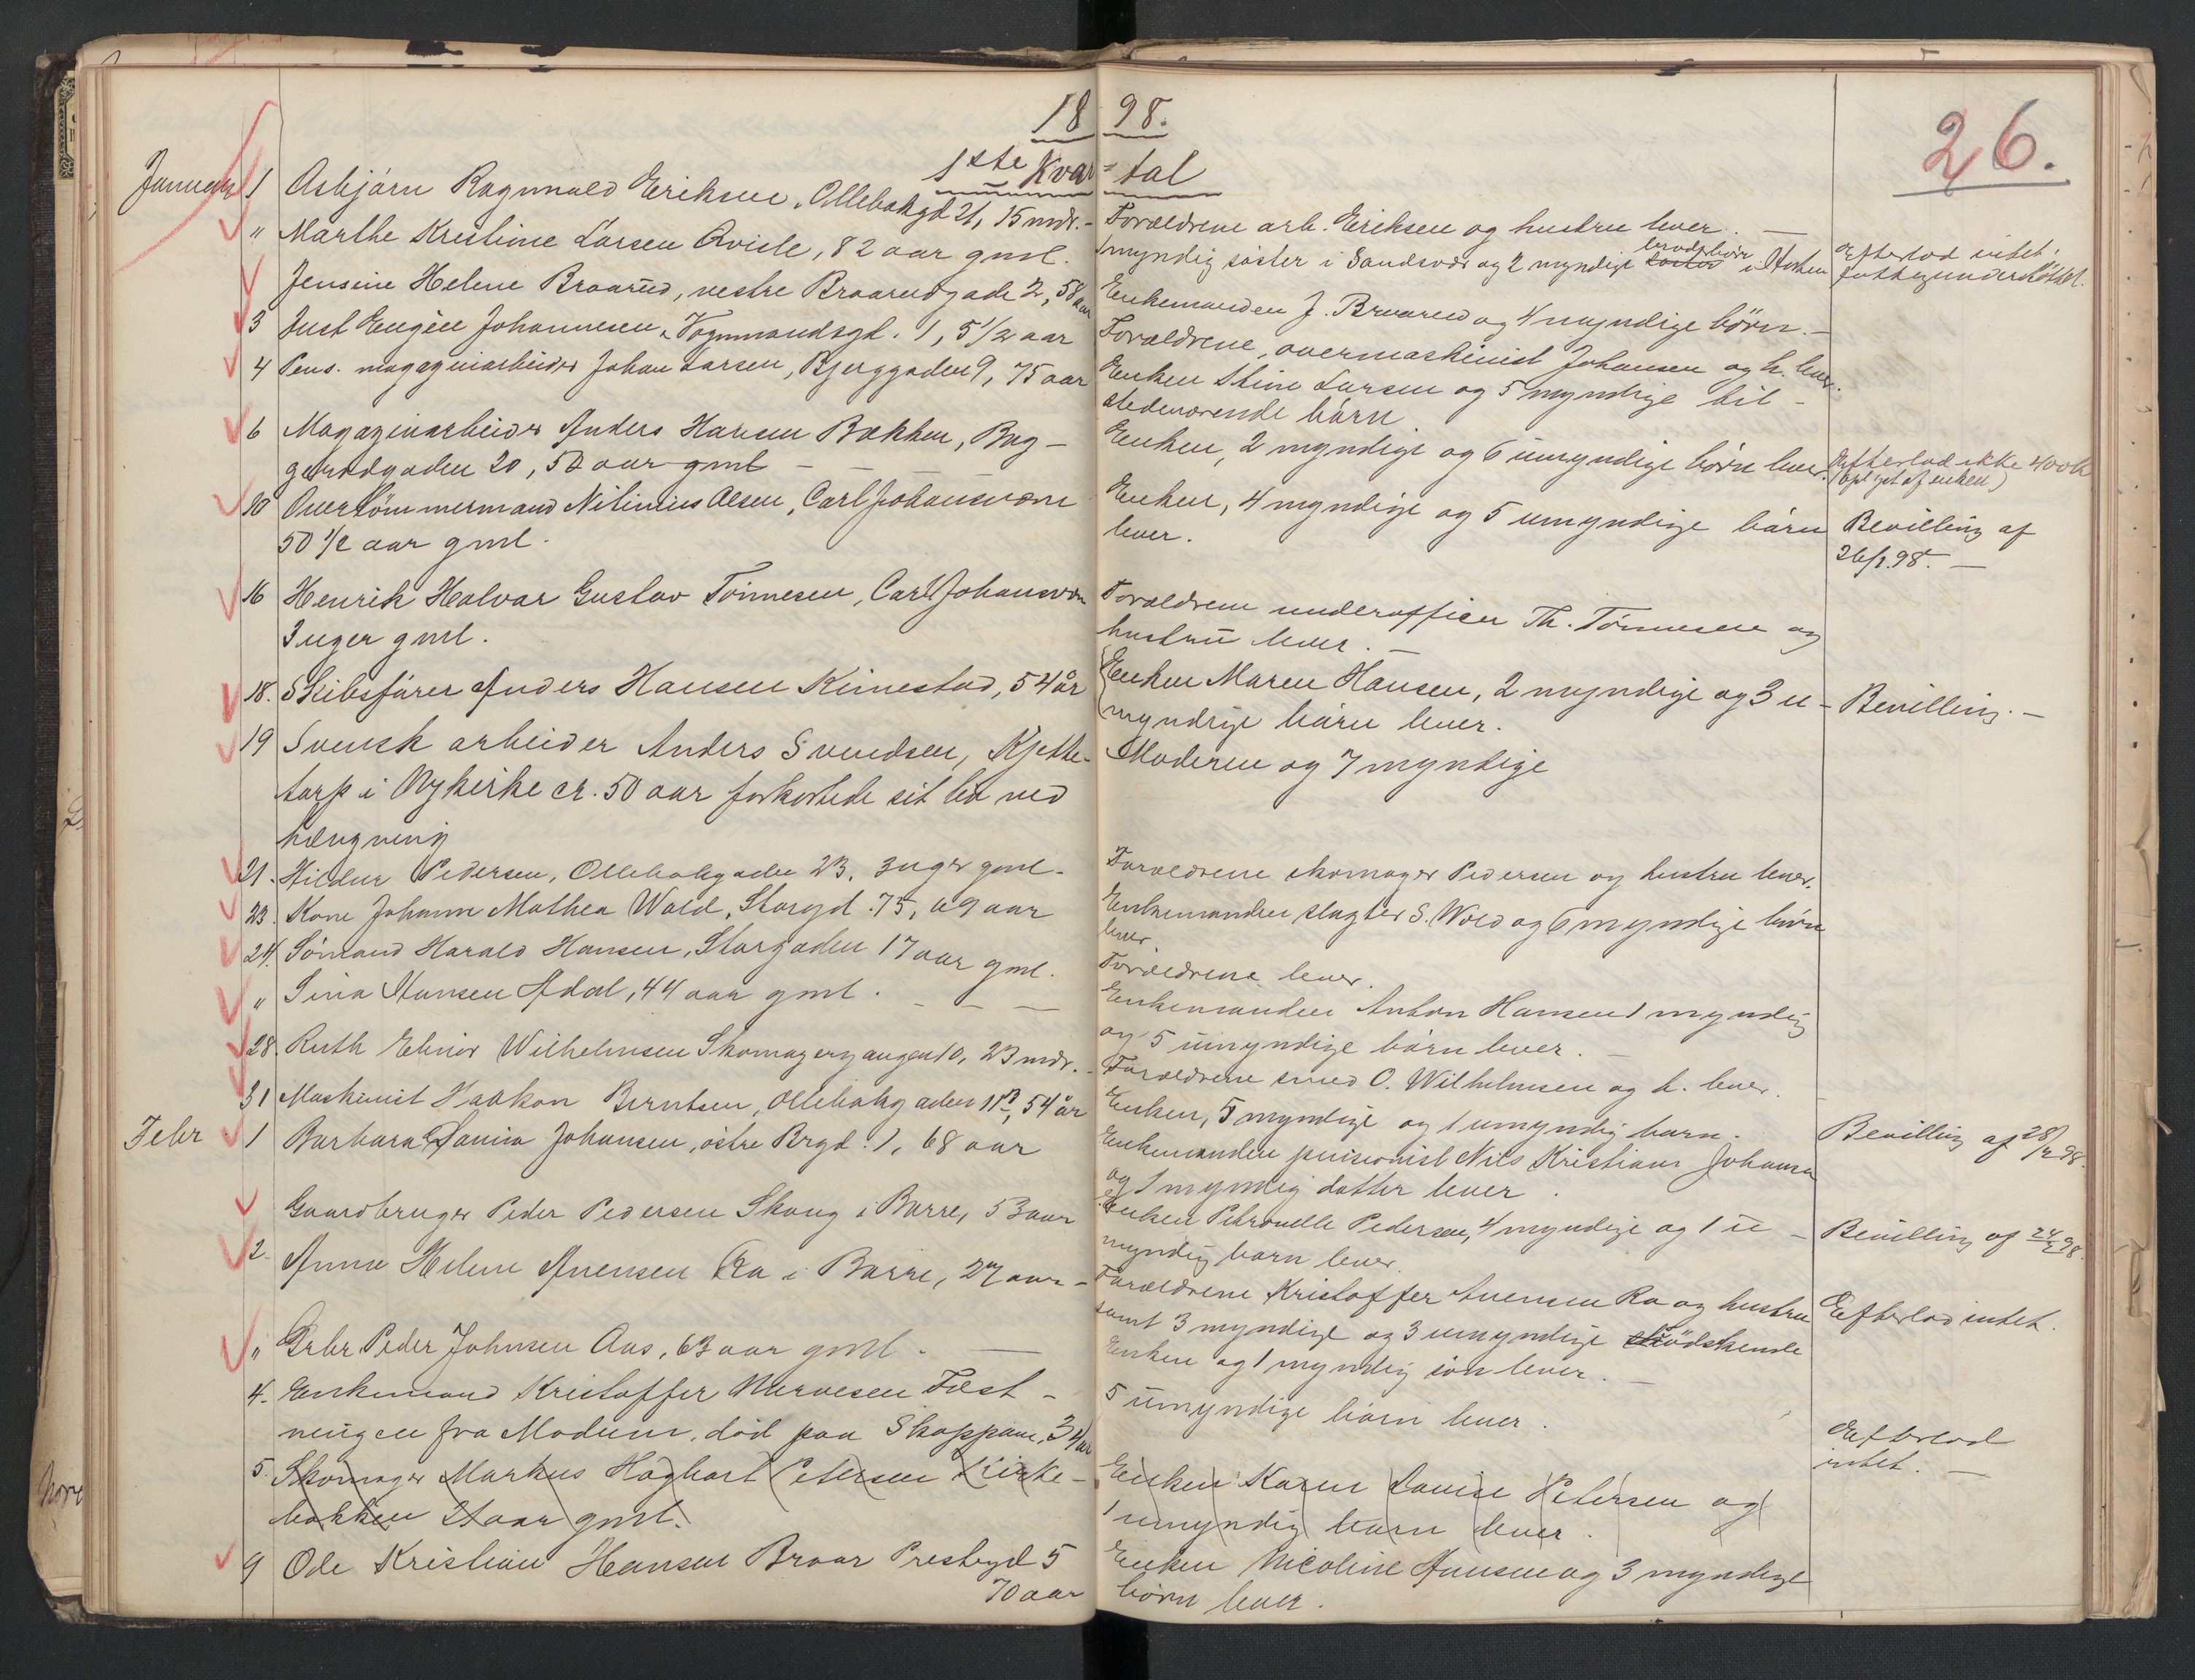 1898.
26.
1ste Kvar=tal
Januar 1 Asbjörn Ragnvald Eriksen, Ollebakgd 21, 15 mdr. -
Forældrene arb. Eriksen og hustru lever. —
" Marthe Kristine Larsen Qvisle, 82 aar gml.
1 myndig søster i Sandsvær og 2 myndige broderbörn i Horten
efterlod intet.
fattigunderstöttet.
Jensine Helene Braarud, vestre Braarudgade 2, 58 aar
Enkemanden J. Braarud og 4 myndige börn. -
3 Just Eugèn Johannesen, Vognmandsgd. 1, 5 1/2 aar
Forældrene, overmaskinist Johansen og h. lever.
4 Pens. magazinarbeider Johan Larsen, Bjerggaden 9, 75 aar
Enken Stine Larsen og 5 myndige til-
stedeværende börn
6 Magazinarbeider Anders Hansen Bakken, Bag-
gerødgaden 20, 50 aar gml - - -
Enken, 2 myndige og 6 umyndige börn lever.
Efterlod ikke 400 kr
(oplyst af enken)
10 Overtömmermand Nilinius Olsen, Carl Johansværn
50 1/2 aar gml.
Enken, 4 myndige og 5 umyndige börn
lever.
Bevilling af
26/1.98. —
16 Henrik Halvar Gustav Tönnesen, Carl Johansværn
3 uger gml.
Forældrene underofficer Th. Tönnesen og
hustru lever. -
18. Skibsförer Anders Hansen Kimestad, 54 år
Enken Maren Hansen, 2 myndige og 3 u-
myndige börn lever.
Bevilling. -
19 Svensk arbeider Anders Svendsen, Kjette-
torp i Nykirke cr. 50 aar forkortede sit liv ved
hængning
Moderen og 7 myndige
21. Hildur Pedersen, Ollebakgaden 23, 3 uger gml.
Forældrene skomager Pedersen og hustru lever.
23. Kone Johanne Mathea Wold, Storgd. 75, 69 aar
Enkemanden slagter S. Wold og 6 myndige börn
lever.
24. Sömand Harald Hansen, Storgaden 17 aar gml.
Forældrene lever.
" Sina Hansen Adal, 44 aar gml. - - -
Enkemanden Anton Hansen 1 myndig
og 5 umyndige börn lever. -
28. Ruth Elinor Wilhelmsen Skomagergangen 10, 23 mdr. -
Forældrene smed O. Wilhelmsen og h. lever.
31 Maskinist Haakon Berntsen, Ollebakgaden 11B, 54 år
Enken, 5 myndige og 1 umyndig barn.
Bevilling af 28/2 98.
Febr 1 Barbara Lanina Johansen, östre Brgd. 1, 68 aar
Enkemanden pensionist Nils Kristian Johansen
og 1 myndig datter lever.
Gaardbruger Peder Pedersen Skaug i Borre, 53 aar
Enken Petronelle Pedersen, 4 myndige og 1 u-
myndig barn lever.
Bevilling af 24/2 98.
2. Anna Helene Arensen Ra i Borre, 27 aar -
Forældrene Kristoffer Arensen Ra og hustru
samt 3 myndige og 3 umyndige södskende
Efterlod intet.
" Grbr Peder Johnsen Aas, 63 aar gml. —
Enken og 1 myndig sön lever. -
4. Enkemand Kristoffer Narvesen Fæst-
ningen fra Modum, död paa Skoppum, 34 aar
5 umyndige börn lever.
Efterlod
intet. —
5. Skomager Markus Hagbart Petersen Kirke-
bakken 21 aar gml.
Enken Karen Louise Petersen og
1 umyndig barn lever.
9 Ole Kristian Hansen Braar Prestegd 5
70 aar
Enken Nicoline Hansen og 3 myndige
börn lever.